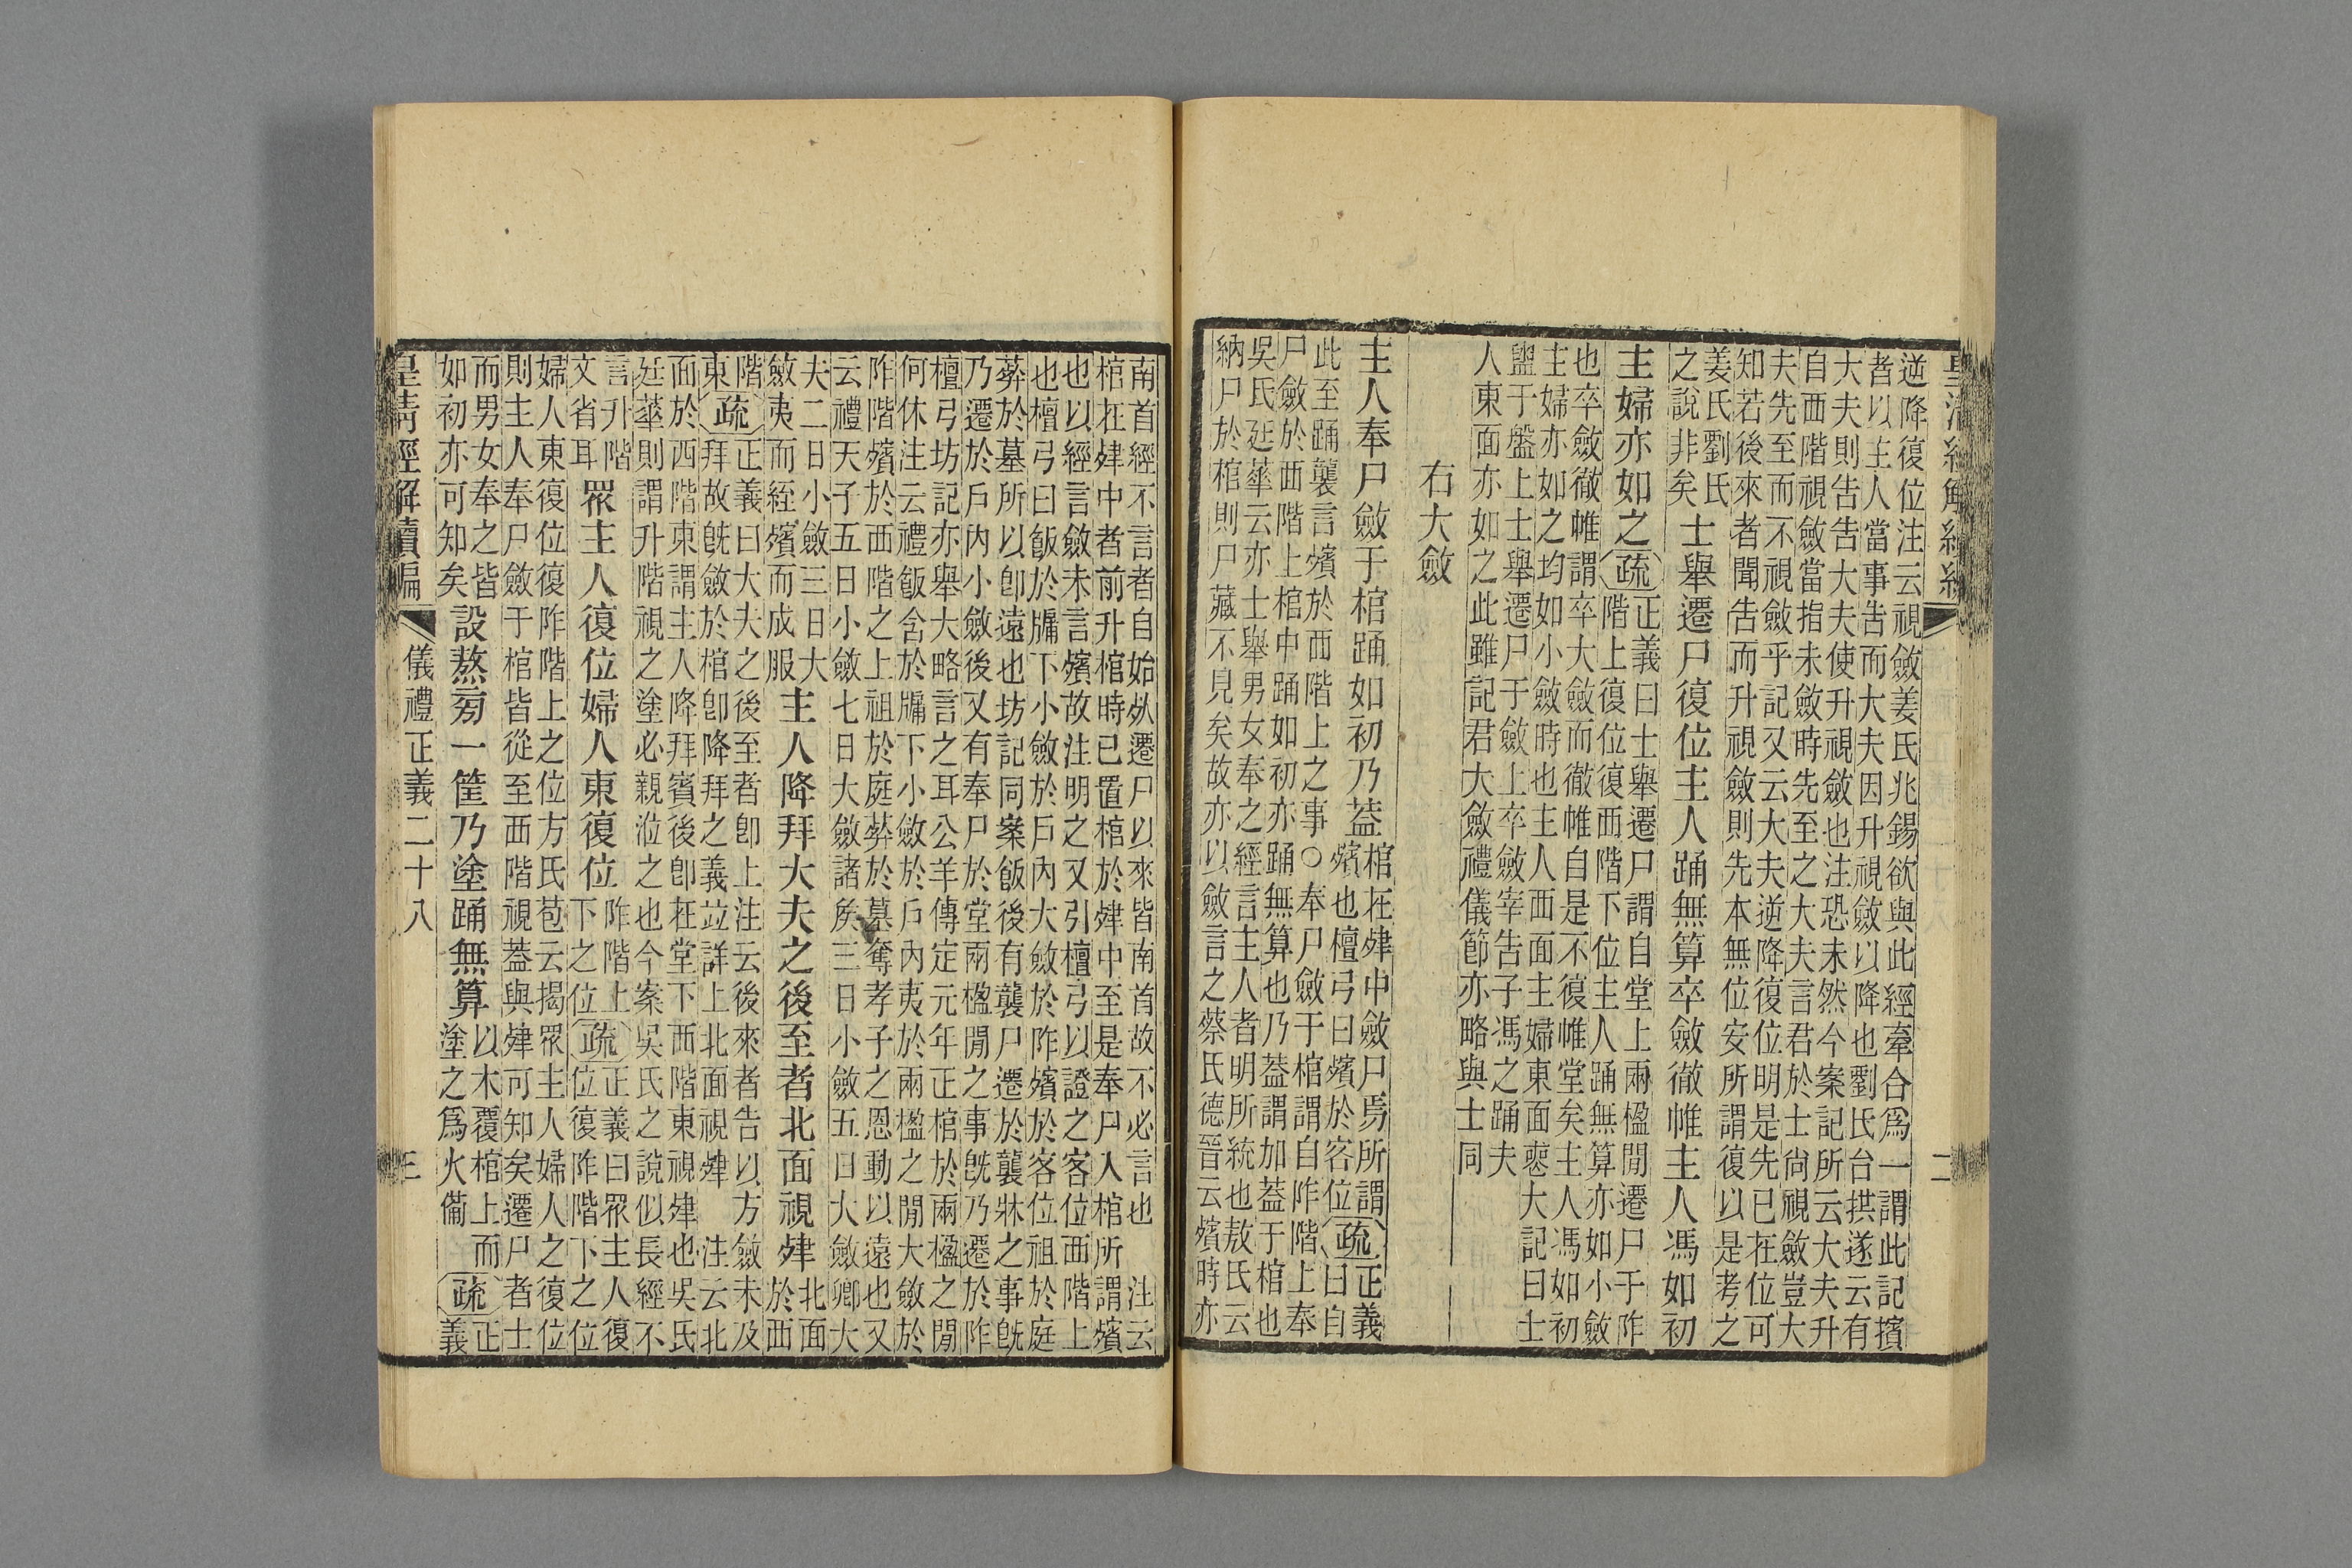 逆降復位注云視斂姜氏兆錫欲與此經牽合爲一謂此記擯
者以主人當事告而大夫因升視斂以降也劉氏台拱遂云有
大夫則告告大夫使升視斂也注恐未然今案記所云大夫升
自西階視斂當指未斂時先至之大夫言君於士尚視斂豈大
夫先至而不視斂乎記又云大夫逆降復位明是先已在位可
知若後來者聞告而升視斂則先本無位安所謂復以是考之
姜氏劉氏
之說非矣
士舉遷尸復位主人踊無算卒斂徹帷主人馮如初
主婦亦如之
疏
正義曰士舉遷尸謂自堂上兩楹閒遷尸于阼
階上復位復西階下位主人踊無算亦如小斂
也卒斂徹帷謂卒大斂而徹帷自是不復帷堂矣主人馮如初
主婦亦如之均如小斂時也主人西面主婦東面喪大記曰士
盥于盤上士舉遷尸于斂上卒斂宰告子馮之踊夫
人東面亦如之此雖記君大斂禮儀節亦略與士同
右大斂
主人奉尸斂于棺踊如初乃葢
棺在肂中斂尸焉所謂
殯也檀弓曰殯於客位
疏
正義
曰自
此至踊襲言殯於西階上之事○奉尸斂于棺謂自阼階上奉
尸斂於西階上棺中踊如初亦踊無算也乃葢謂加葢于棺也
吳氏廷華云亦士舉男女奉之經言主人者明所統也敖氏云
納尸於棺則尸藏不見矣故亦以斂言之蔡氏德晉云殯時亦
二
南首經不言者自始死遷尸以來皆南首故不必言也 注云
棺在肂中者前升棺時已置棺於肂中至是奉尸入棺所謂殯
也以經言斂未言殯故注明之又引檀弓以證之客位西階上
也檀弓曰飯於牖下小斂於戶內大斂於阼殯於客位祖於庭
葬於墓所以卽遠也坊記同案飯後有襲尸遷於襲牀之事旣
乃遷於戶內小斂後又有奉尸於堂兩楹閒之事旣乃遷於阼
檀弓坊記亦舉大略言之耳公羊傳定元年正棺於兩楹之閒
何休注云禮飯含於牖下小斂於戶內夷於兩楹之閒大斂於
阼階殯於西階之上祖於庭葬於墓奪孝子之恩動以遠也又
云禮天子五日小斂七日大斂諸矦三日小斂五日大斂卿大
夫二日小斂三日大
斂夷而絰殯而成服
主人降拜大夫之後至者北面視肂
北面
於西
階
東
疏
正義曰大夫之後至者卽上注云後來者告以方斂未及
拜故旣斂於棺卽降拜之義竝詳上北面視肂 注云北
面於西階東謂主人降拜賓後卽在堂下西階東視肂也吳氏
廷華則謂升階視之塗必親涖之也今案吳氏之說似長經不
言升階
文省耳
眾主人復位婦人東復位
阼階上
下之位
疏
正義曰眾主人復
位復阼階下之位
婦人東復位復阼階上之位方氏苞云揭眾主人婦人之復位
則主人奉尸斂于棺皆從至西階視葢與肂可知矣遷尸者士
而男女奉之皆
如初亦可知矣
設熬旁一筐乃塗踊無算
以木覆棺上而
塗之爲火備
疏
正
義
皇清經解續編 儀禮正義二十八 三